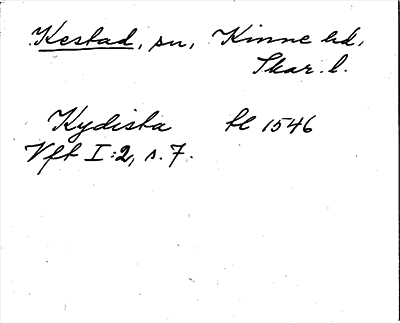 Kestad, sn, Kinne hd,
Skar. l.
Kydista fl 1546
Vft I:2, s. 7.